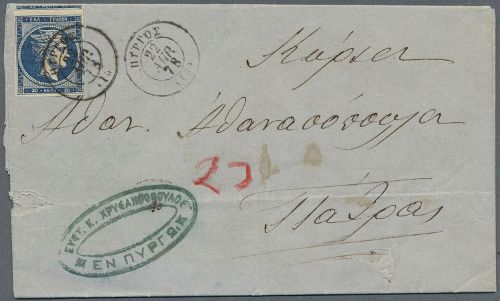 ΕΛΛ. ΓΡΑΜΜ.
20 ΛΕΠΤ. 20
ΠΥΡΓΟΣ
22
78
Κύριον
Αθαν. Αθανασόπουλον
Πάτρας
ΕΥΣΤ. Κ. ΧΡΥΣΑΝΘΟΠΟΥΛΟΣ
ΕΝ ΠΥΡΓΩ